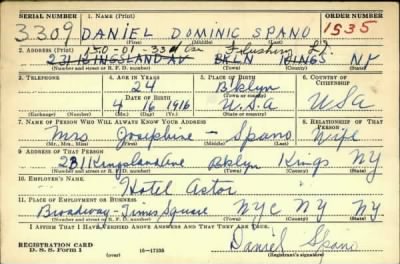 SERIAL NUMBER 1. NAME (Print) ORDER NUMBER
3309 DANIEL DOMINIC SPANO 1535
(First) (Middle) (Last)
150-01-33d Flushing
2. ADDRESS (Print)
231 KINGSLAND AV BKLN KINGS NY
(Number and street or R. F. D. number) (Town) (County) (State)
3. TELEPHONE 4. AGE IN YEARS 5. PLACE OF BIRTH 6. COUNTRY OF CITIZENSHIP
24 Bklyn
DATE OF BIRTH (Town or county)
4 16 1916 U.S.A USA
(Exchange) (Number) (Mo.) (Day) (Yr.) (State or country)
7. NAME OF PERSON WHO WILL ALWAYS KNOW YOUR ADDRESS 8. RELATIONSHIP OF THAT PERSON
Mrs Josephine - Spano Wife
(Mr., Mrs., Miss) (First) (Middle) (Last)
9. ADDRESS OF THAT PERSON
231 Kingsland Ave Bklyn Kings NY
(Number and street or R. F. D. number) (Town) (County) (State)
10. EMPLOYER'S NAME
Hotel Astor
11. PLACE OF EMPLOYMENT OR BUSINESS
Broadway-Times Square NYC NY NY
(Number and street or R. F. D. number) (Town) (County) (State)
I AFFIRM THAT I HAVE VERIFIED ABOVE ANSWERS AND THAT THEY ARE TRUE.
REGISTRATION CARD
D. S. S. Form 1 16-17255 Daniel Spano
(over) (Registrant's signature)